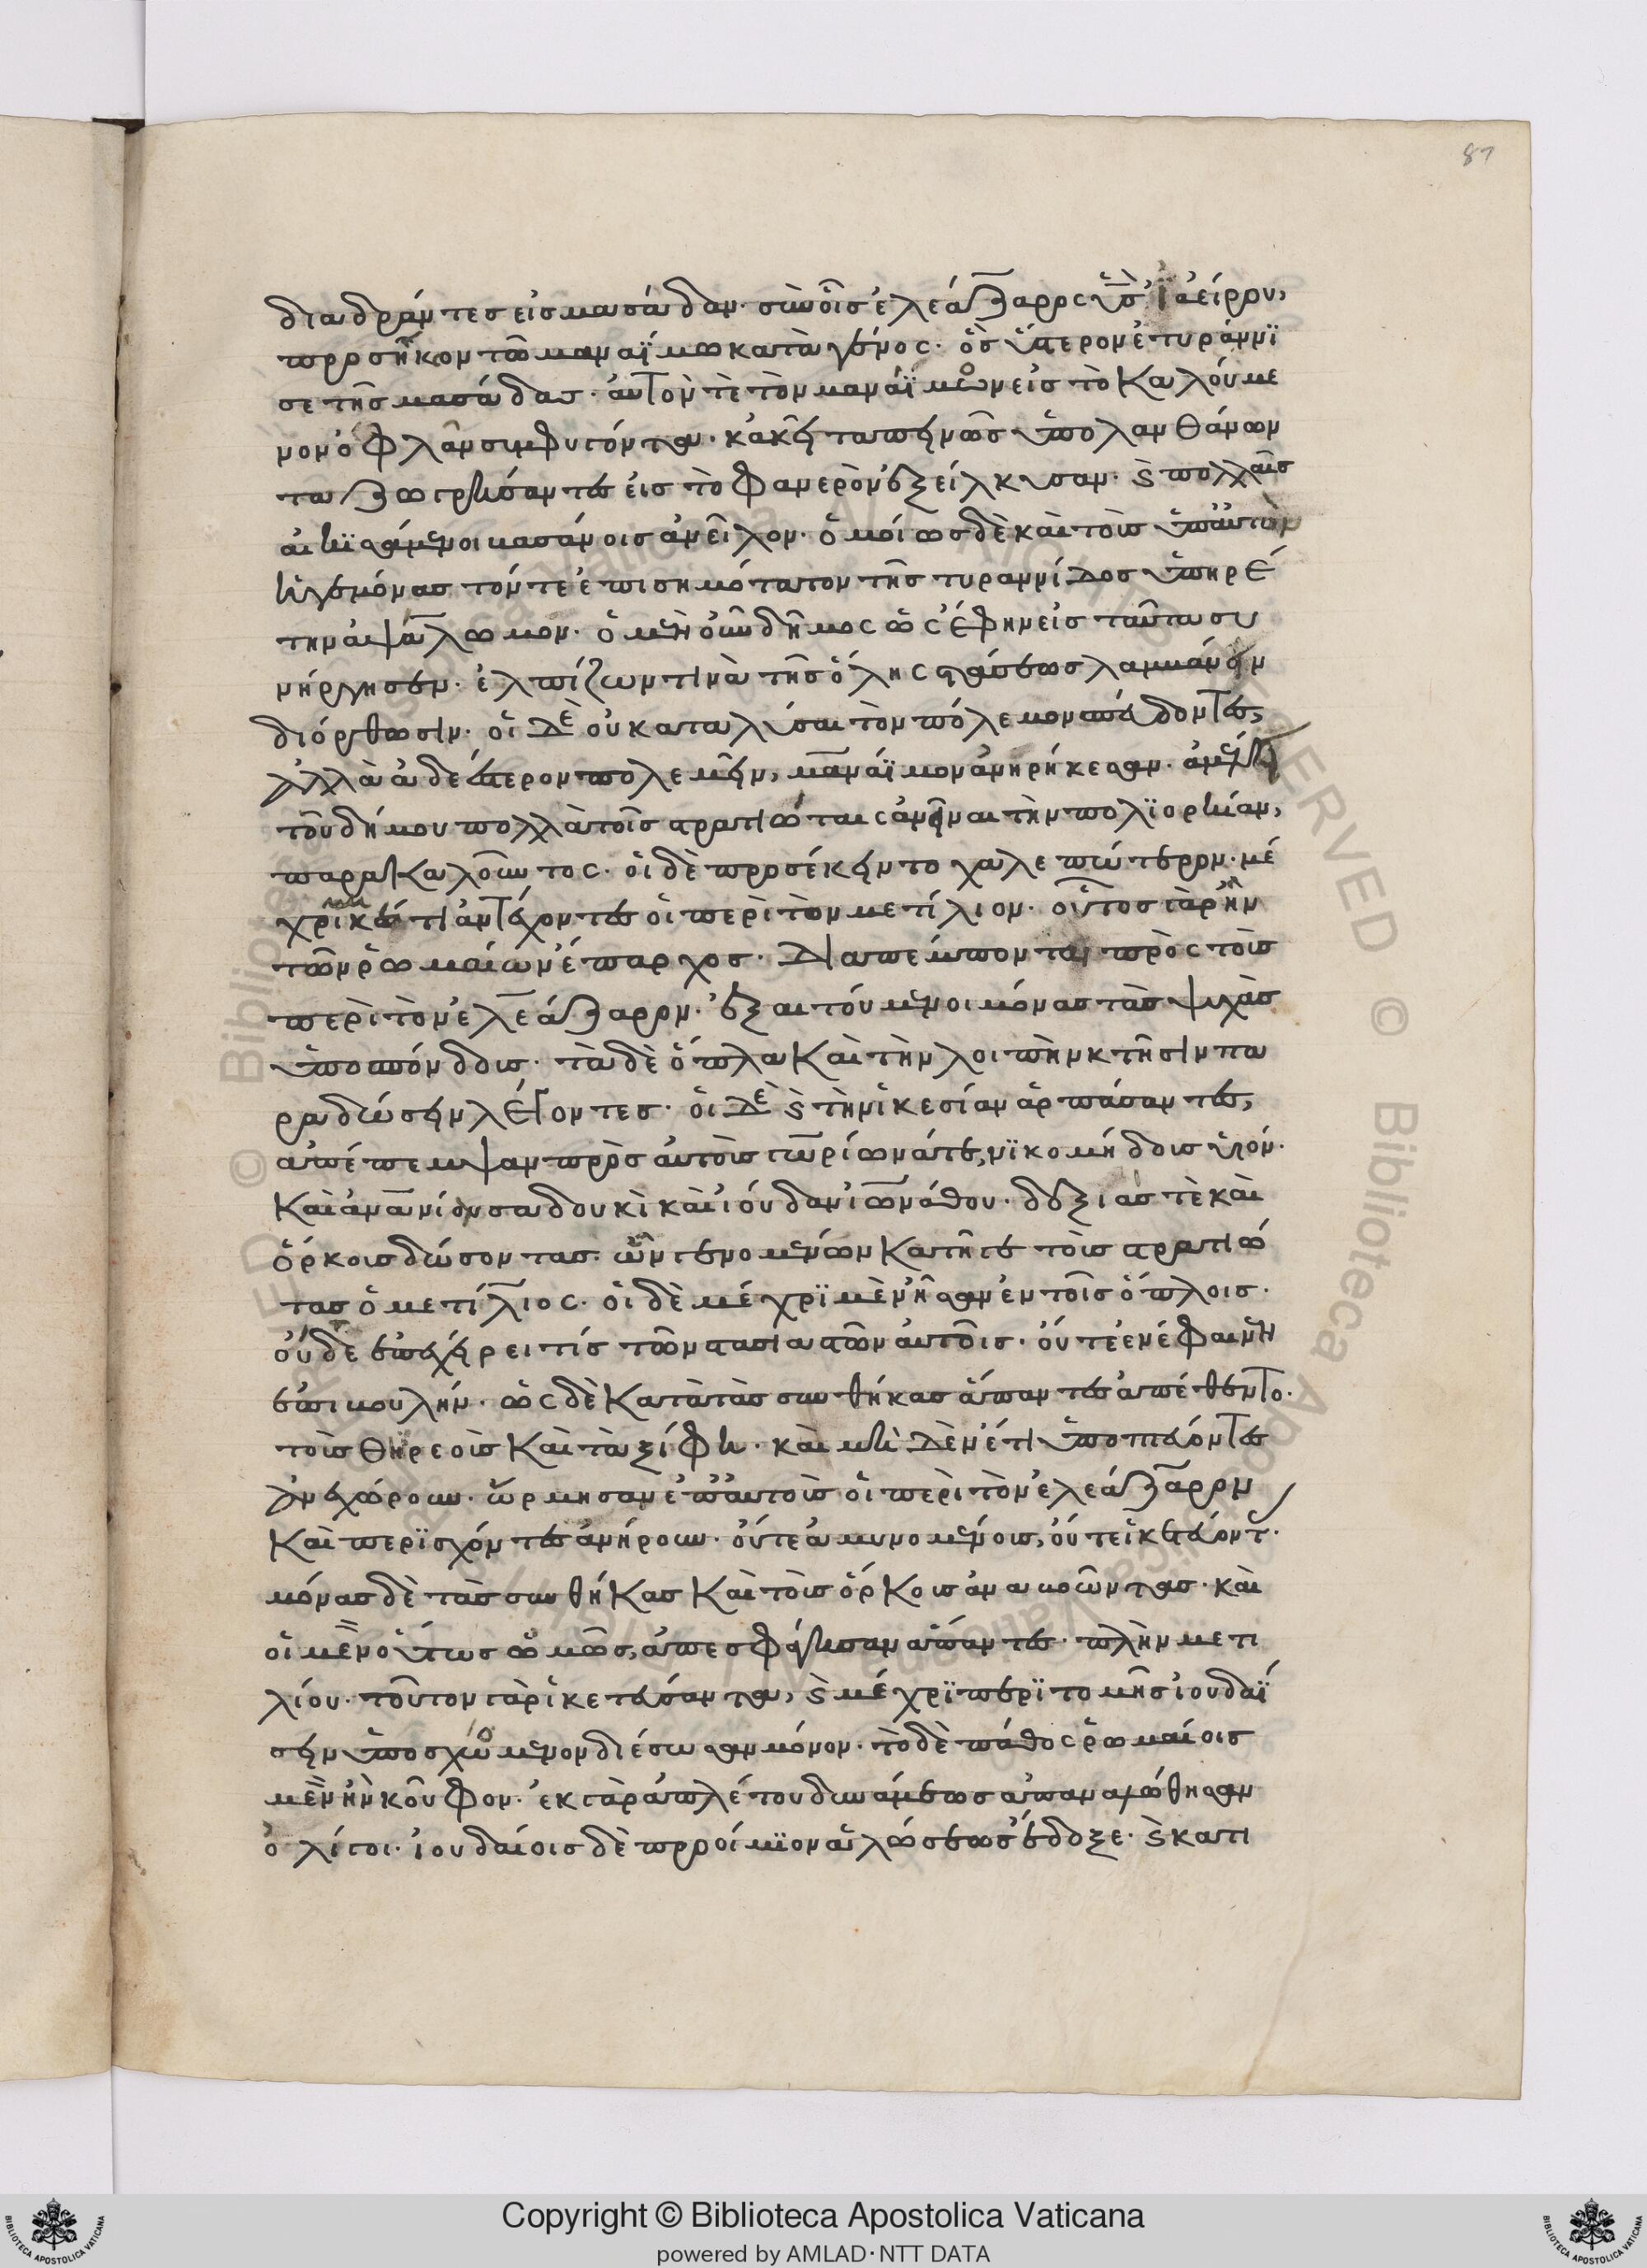 87
διαδράντες εἰς μασάδαν· σὺν οἷς ἐλεάζαρος υἱὸς ἰαείρου,
προσήκον τῶ μαναΐμω κατὰ γένος· ὃς ὕστερον ἐτυράννϊ
σε τῆς μασάδας· αὐτόν τε τὸν μανάϊμον εἰς τὸ καλούμε
νον ὀφλᾶν συμφυγόντα· κἀκεῖ ταπεινῶς ὑπολανθάνων
τα ζωγρήσαντες εἰς τὸ φανερὸν ἐξείλκυσαν· καὶ πολλαῖς
αἰκϊσάμενοι βασάνοις ἀνεῖλον· ὁμοίως δὲ καὶ τοὺς ὑπ' αὐτὸν
ἡγεμόνας τόν τε ἐπισημότατον τῆς τυραννίδος ὑπηρέ
την ἀψάλωμον· ὁ μὲν οὖν δῆμος ὡς ἔφην εἰς ταῦτα συ
νήργησεν· ἐλπίζων τινὰ τῆς ὅλης στάσεως λαμβάνειν
διόρθωσιν· οἱ δὲ οὐ καταλύσαι τὸν πόλεμον σπεύδοντες,
ἀλλὰ ἀδεέστερον πολεμεῖν, μανάϊμον ἀνηρήκεσαν· ἀμέλει
τοῦ δήμου πολλὰ τοῖς στρατιώταις ἀνεῖναι τὴν πολϊορκίαν,
παρακαλοῦντος· οἱ δὲ προσέκειντο χαλεπώτερον· μέ
χρι μηκέτι ἀντέχοντες οἱ περὶ τὸν μετίλιον· οὗτος γὰρ ἦν
τῶν ῥωμαίων ἔπαρχος· διαπέμπονται πρὸς τοὺς
περὶ τὸν ἐλεάζαρον· ἐξαιτούμενοι μόνας τὰς ψυχὰς
ὑποσπόνδους· τὰ δὲ ὅπλα καὶ τὴν λοιπὴν κτῆσιν πα
ραδώσειν λέγοντες· οἱ δὲ καὶ τὴν ἱκεσίαν ἁρπάσαντες,
ἀπέπεμψαν πρὸς αὐτοὺς γωρίωνά τε, νϊκομήδους υἱόν·
καὶ ἀνανίον σαδουκὶ καὶ ἰούδαν ἰωνάθου· δεξιάς τε καὶ
ὅρκους δώσοντας· ὧν γενομένων κατῆγε τοὺς στρατιώ
τας ὁ μετίλιος· οἱ δὲ μέχρϊ μὲν ἦσαν ἐν τοῖς ὅπλοις·
οὐδὲ ἐπεχείρει τίς τῶν στασιαστῶν αὐτοῖς· οὔτε ἐνέφαινεν
ἐπιβουλήν· ὡς δὲ κατὰ τὰς συνθήκας ἅπαντες ἀπέθεντο·
τοὺς θυρεοὺς καὶ τὰ ξίφη· καὶ μηδὲν ἔτι ὑποπτεύοντες
ἀνεχώρουν· ὥρμησαν ἐπ' αὐτοὺς οἱ περὶ τὸν ἐλεάζαρον
καὶ περϊσχόντες ἀνήρουν· οὔτε ἀμυνομένους, οὔτε ἱκετεύοντ·
μόνας δὲ τὰς συνθήκας καὶ τοὺς ὅρκους ἀναβοῶντας· καὶ
οἱ μὲν οὕτως ὠμῶς, ἀπεσφάγησαν ἅπαντες· πλὴν μετι
λίου· τοῦτον γὰρ ἱκετεύσαντα, καὶ μέχρϊ περϊτομῆς ἰουδαΐ
σειν ὑποσχόμενον διέσωσαν μόνον· τὸ δὲ πάθος ῥωμαίοις
μὲν ἦν κοῦφον· ἐκ γὰρ ἀπλέτου δυνάμεως ἀπαναλώθησαν
ὀλίγοι· ἰουδαίοις δὲ προοίμϊον ἁλώσεως ἔδοξε· καὶ κατι